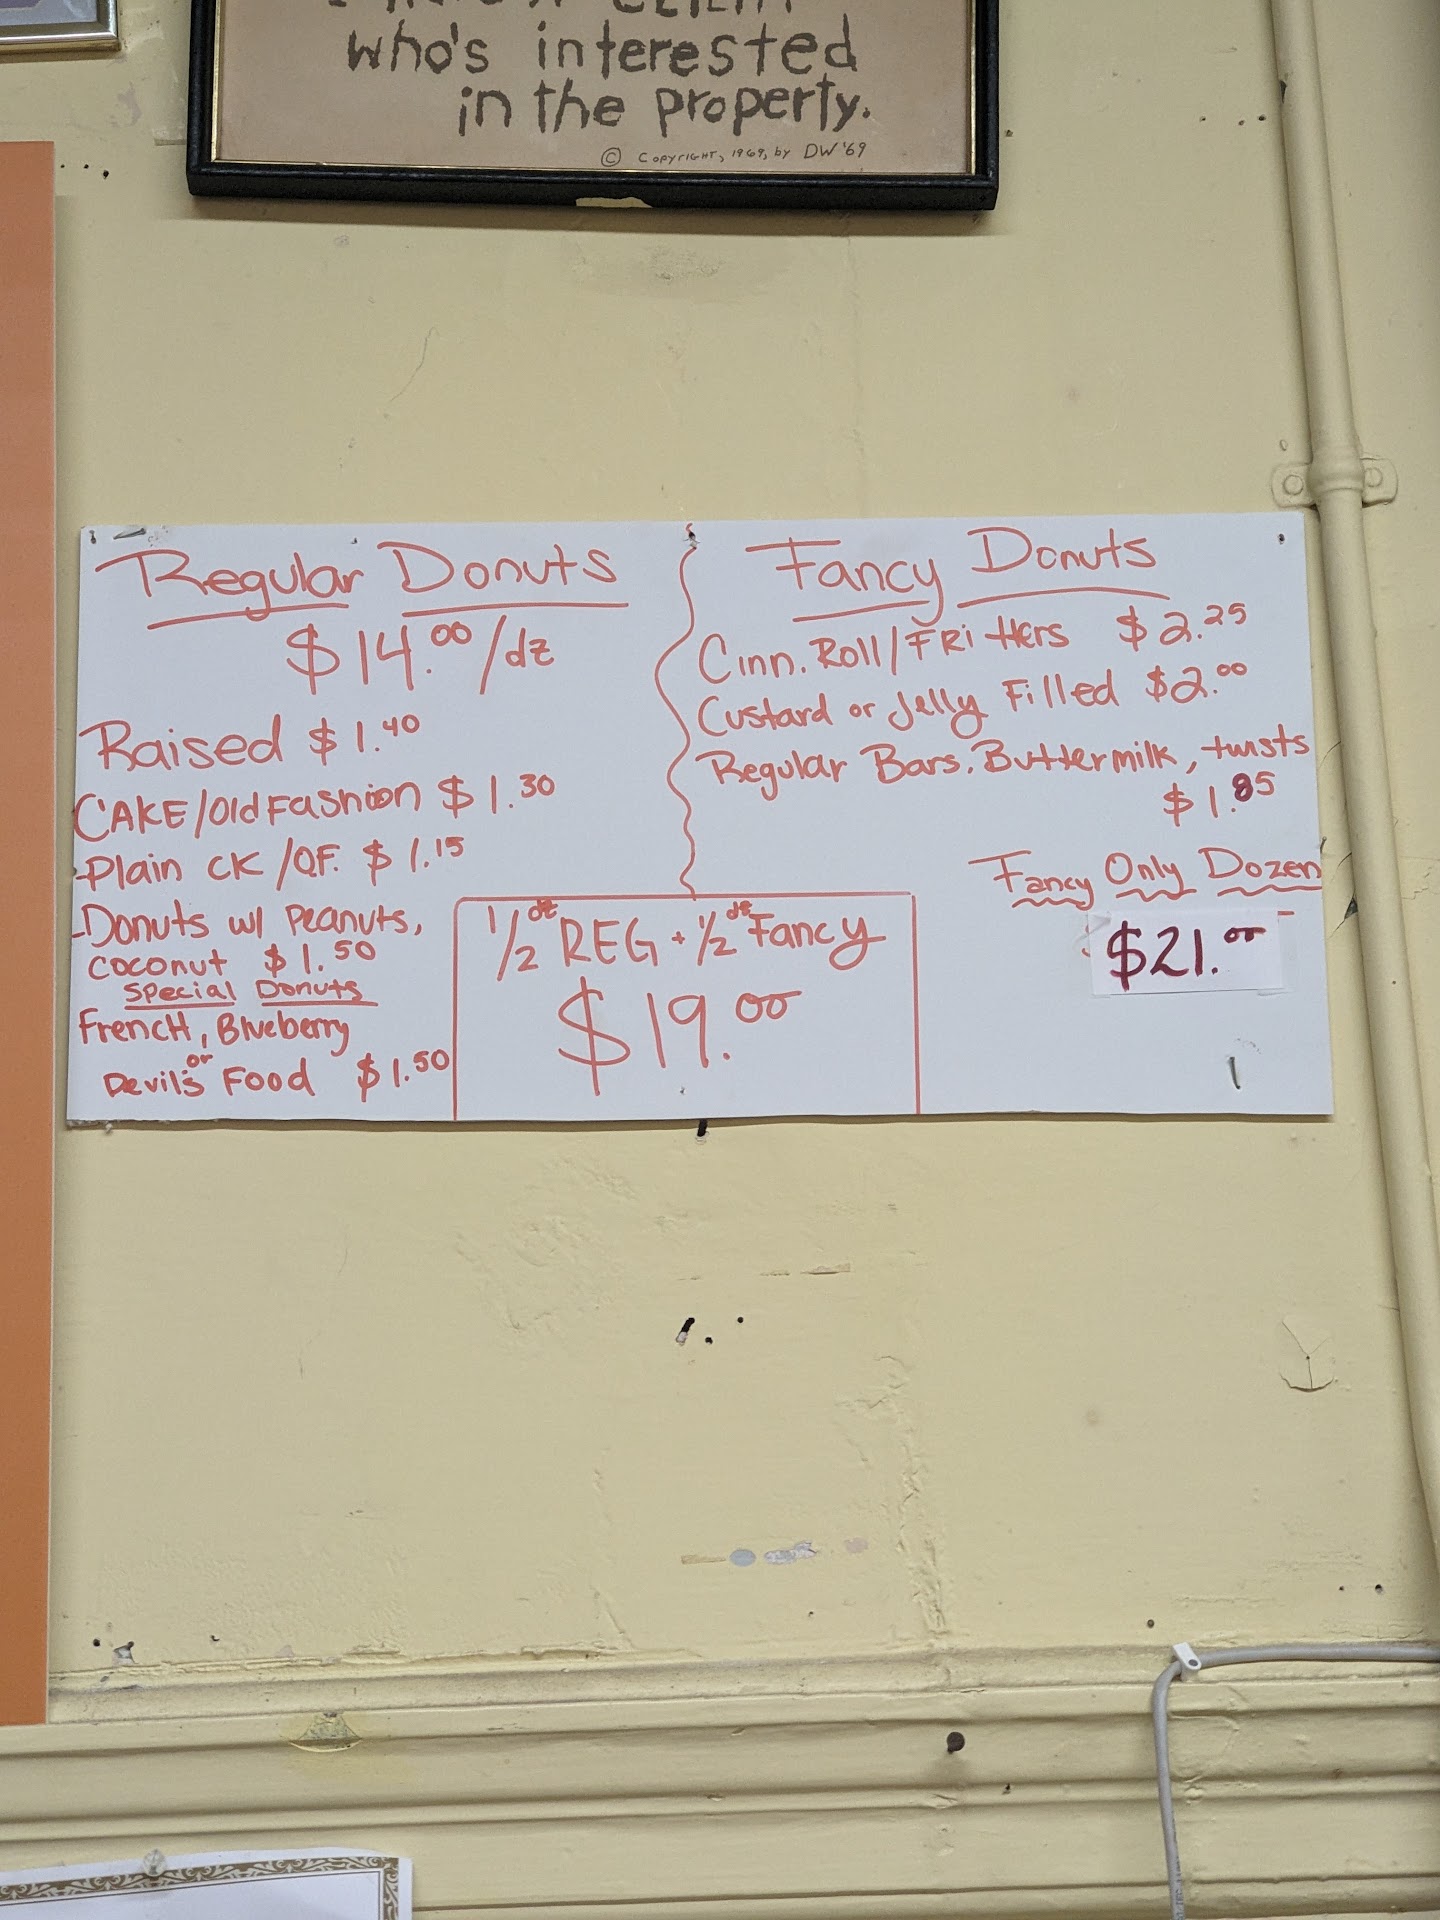 who's interested
in the property.
© Copyright, 1969, by DW '69
Regular Donuts
$14.00/dz
Raised $1.40
CAKE/Old Fashion $1.30
Plain CK/O.F. $1.15
Donuts w/ Peanuts,
coconut $1.50
Special Donuts
French, Blueberry
or
Devil's Food $1.50
Fancy Donuts
Cinn. Roll/FRitters $2.25
Custard or Jelly Filled $2.00
Regular Bars, Buttermilk, twists
$1.85
Fancy Only Dozen
$21.00
1/2 dz REG + 1/2 dz Fancy
$19.00